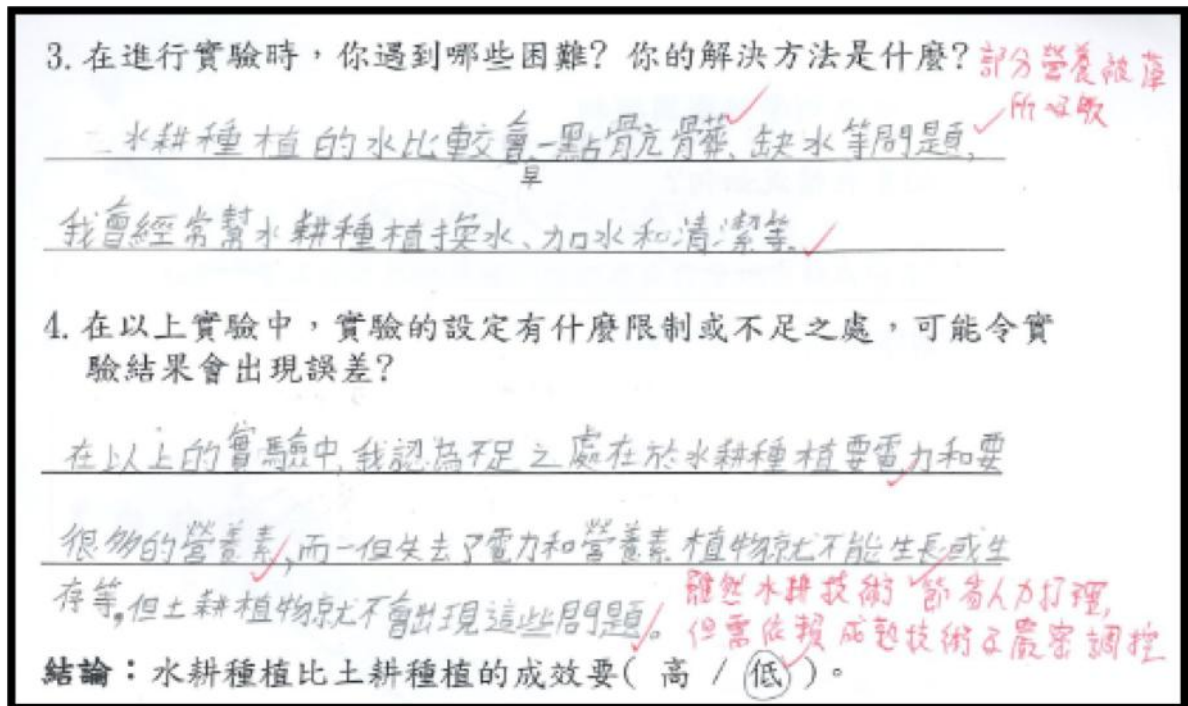 3. 在進行實驗時，你遇到哪些困難? 你的解決方法是什麼?
部分營養被藻
所吸取
水耕種植的水比較會早一點骯髒、缺水等問題,
我會經常幫水耕種植換水、加水和清潔等
4. 在以上實驗中，實驗的設定有什麼限制或不足之處，可能令實
驗結果會出現誤差?
在以上的實驗中,我認為不足之處在於水耕種植要電力和要
很多的營養素,而一但失去了電力和營養素植物就不能生長或生
存等,但土耕植物就不會出現這些問題。
雖然水耕技術節省人力打理,
但需依賴成熟技術及嚴密調控
結論：水耕種植比土耕種植的成效要( 高 / 低 )。